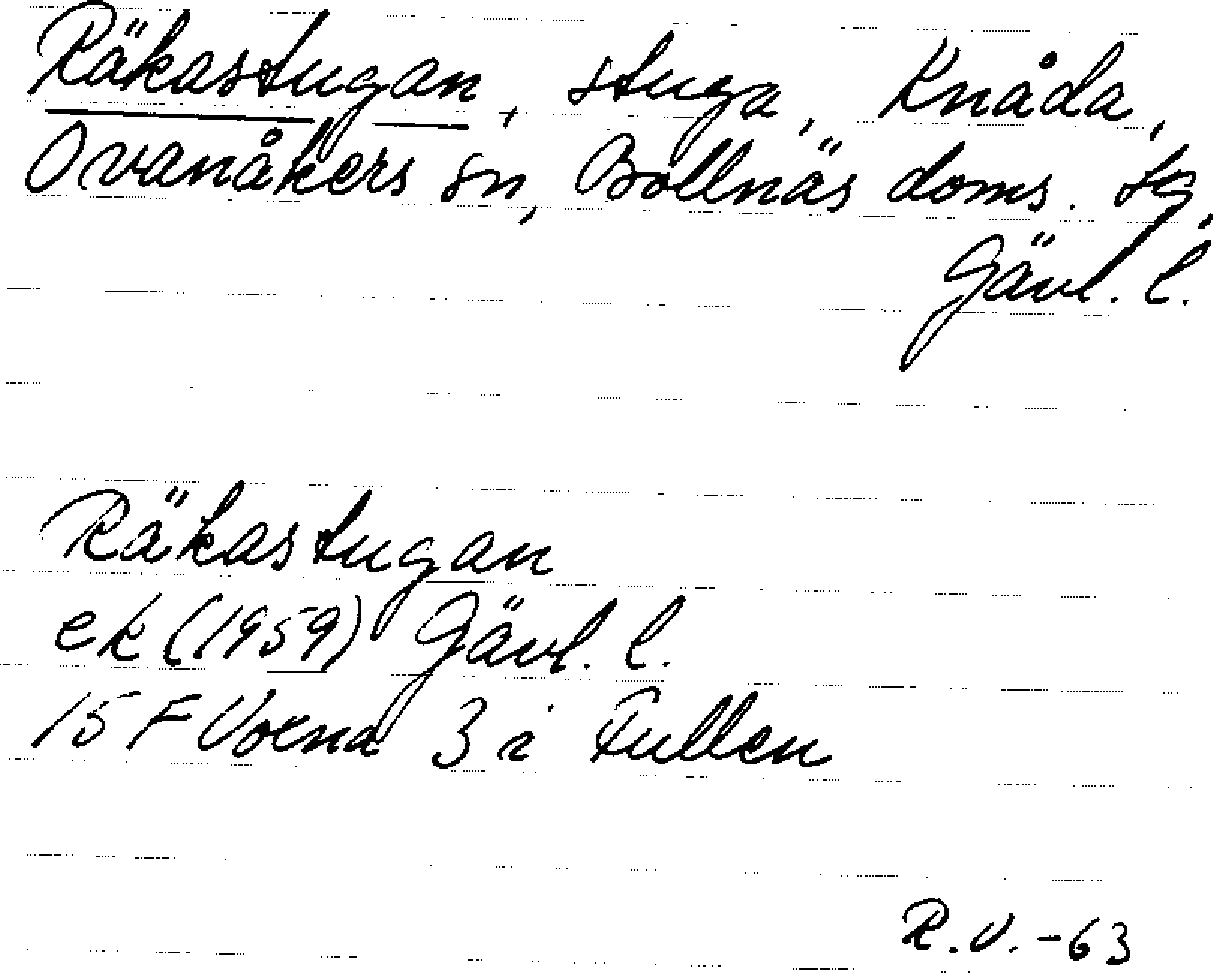 Räkastugan, stuga, Knåda,
Ovanåkers sn, Bollnäs doms. tg,
Gävl. l.
Räkastugan
ek (1959) Gävl. l.
15 F Voxna 3 i Fullen
R.V. -63